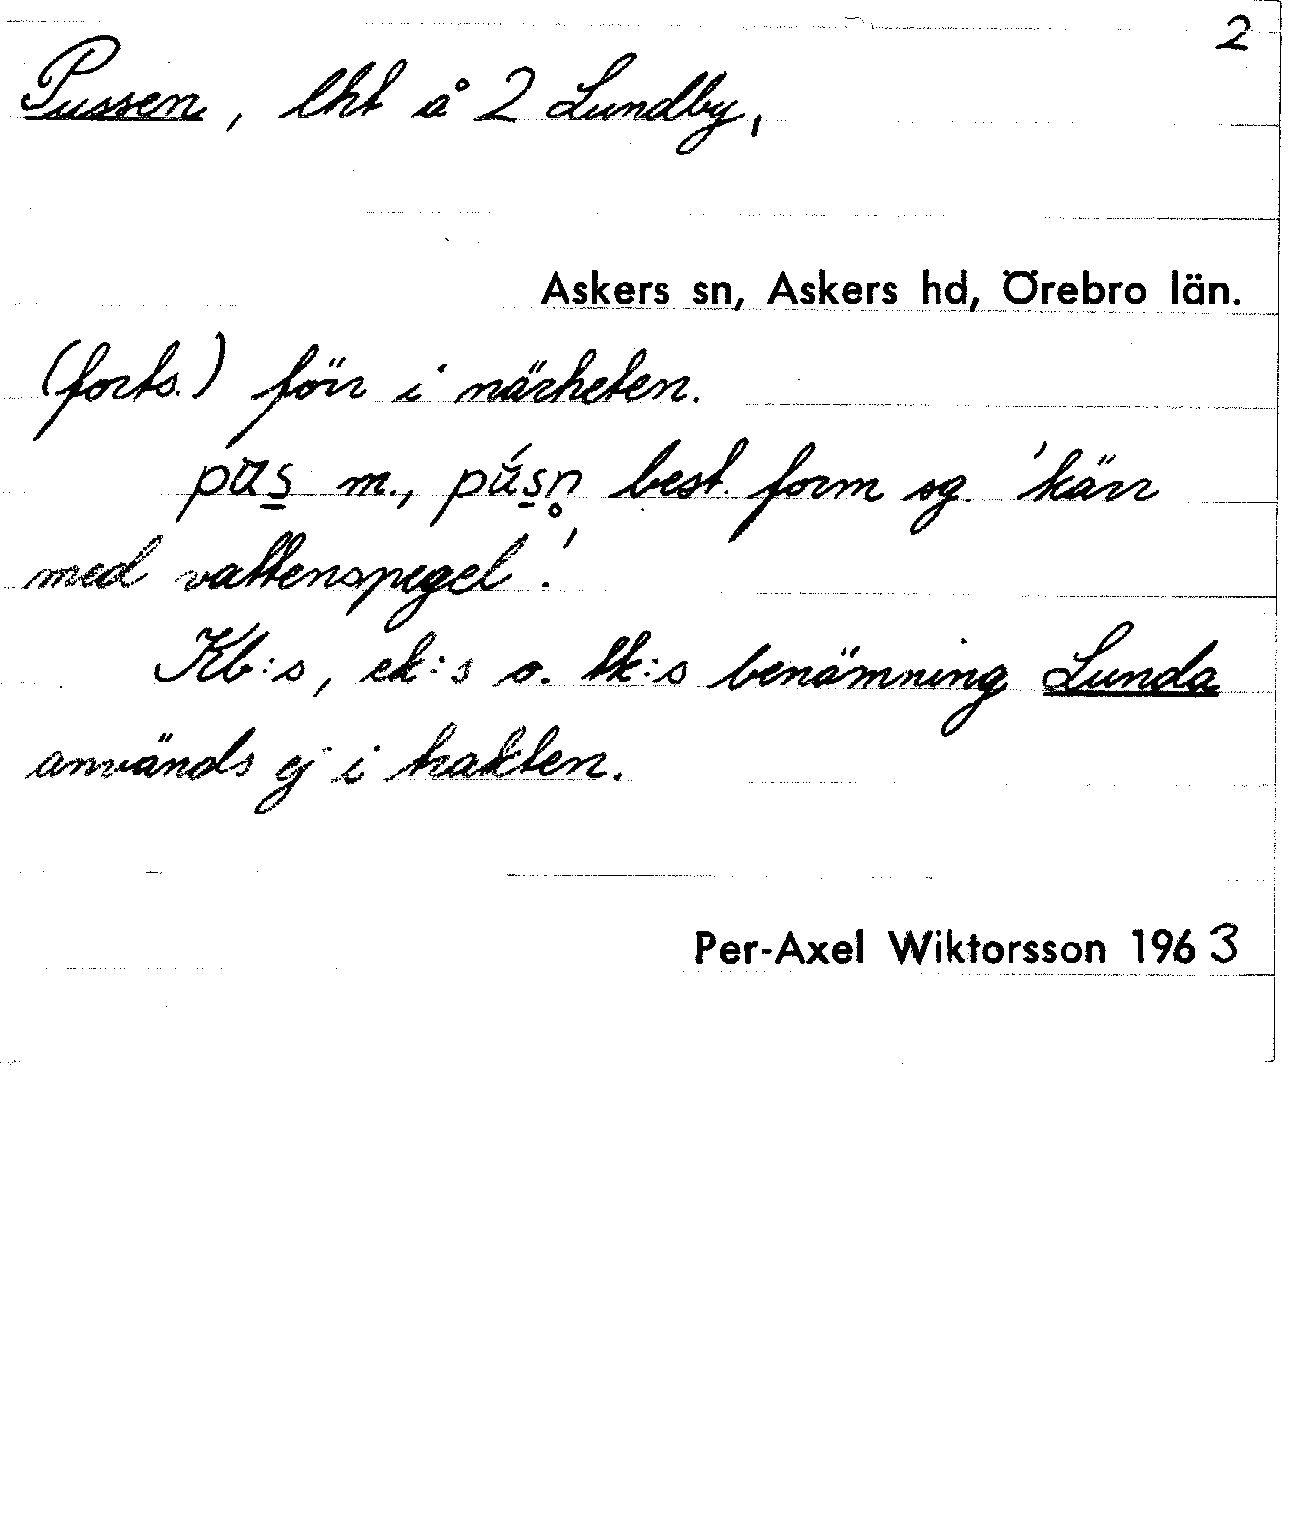 2
Pussen, lht å 2 Lundby,
Askers sn, Askers hd, Örebro län.
(forts.) förr i närheten.
pus̱ m., pús̱n̥ best. form sg. 'kärr
med vattenspegel'.
Kb:s, ek:s o. tk:s benämning Lunda
används ej i trakten.
Per-Axel Wiktorsson 1963